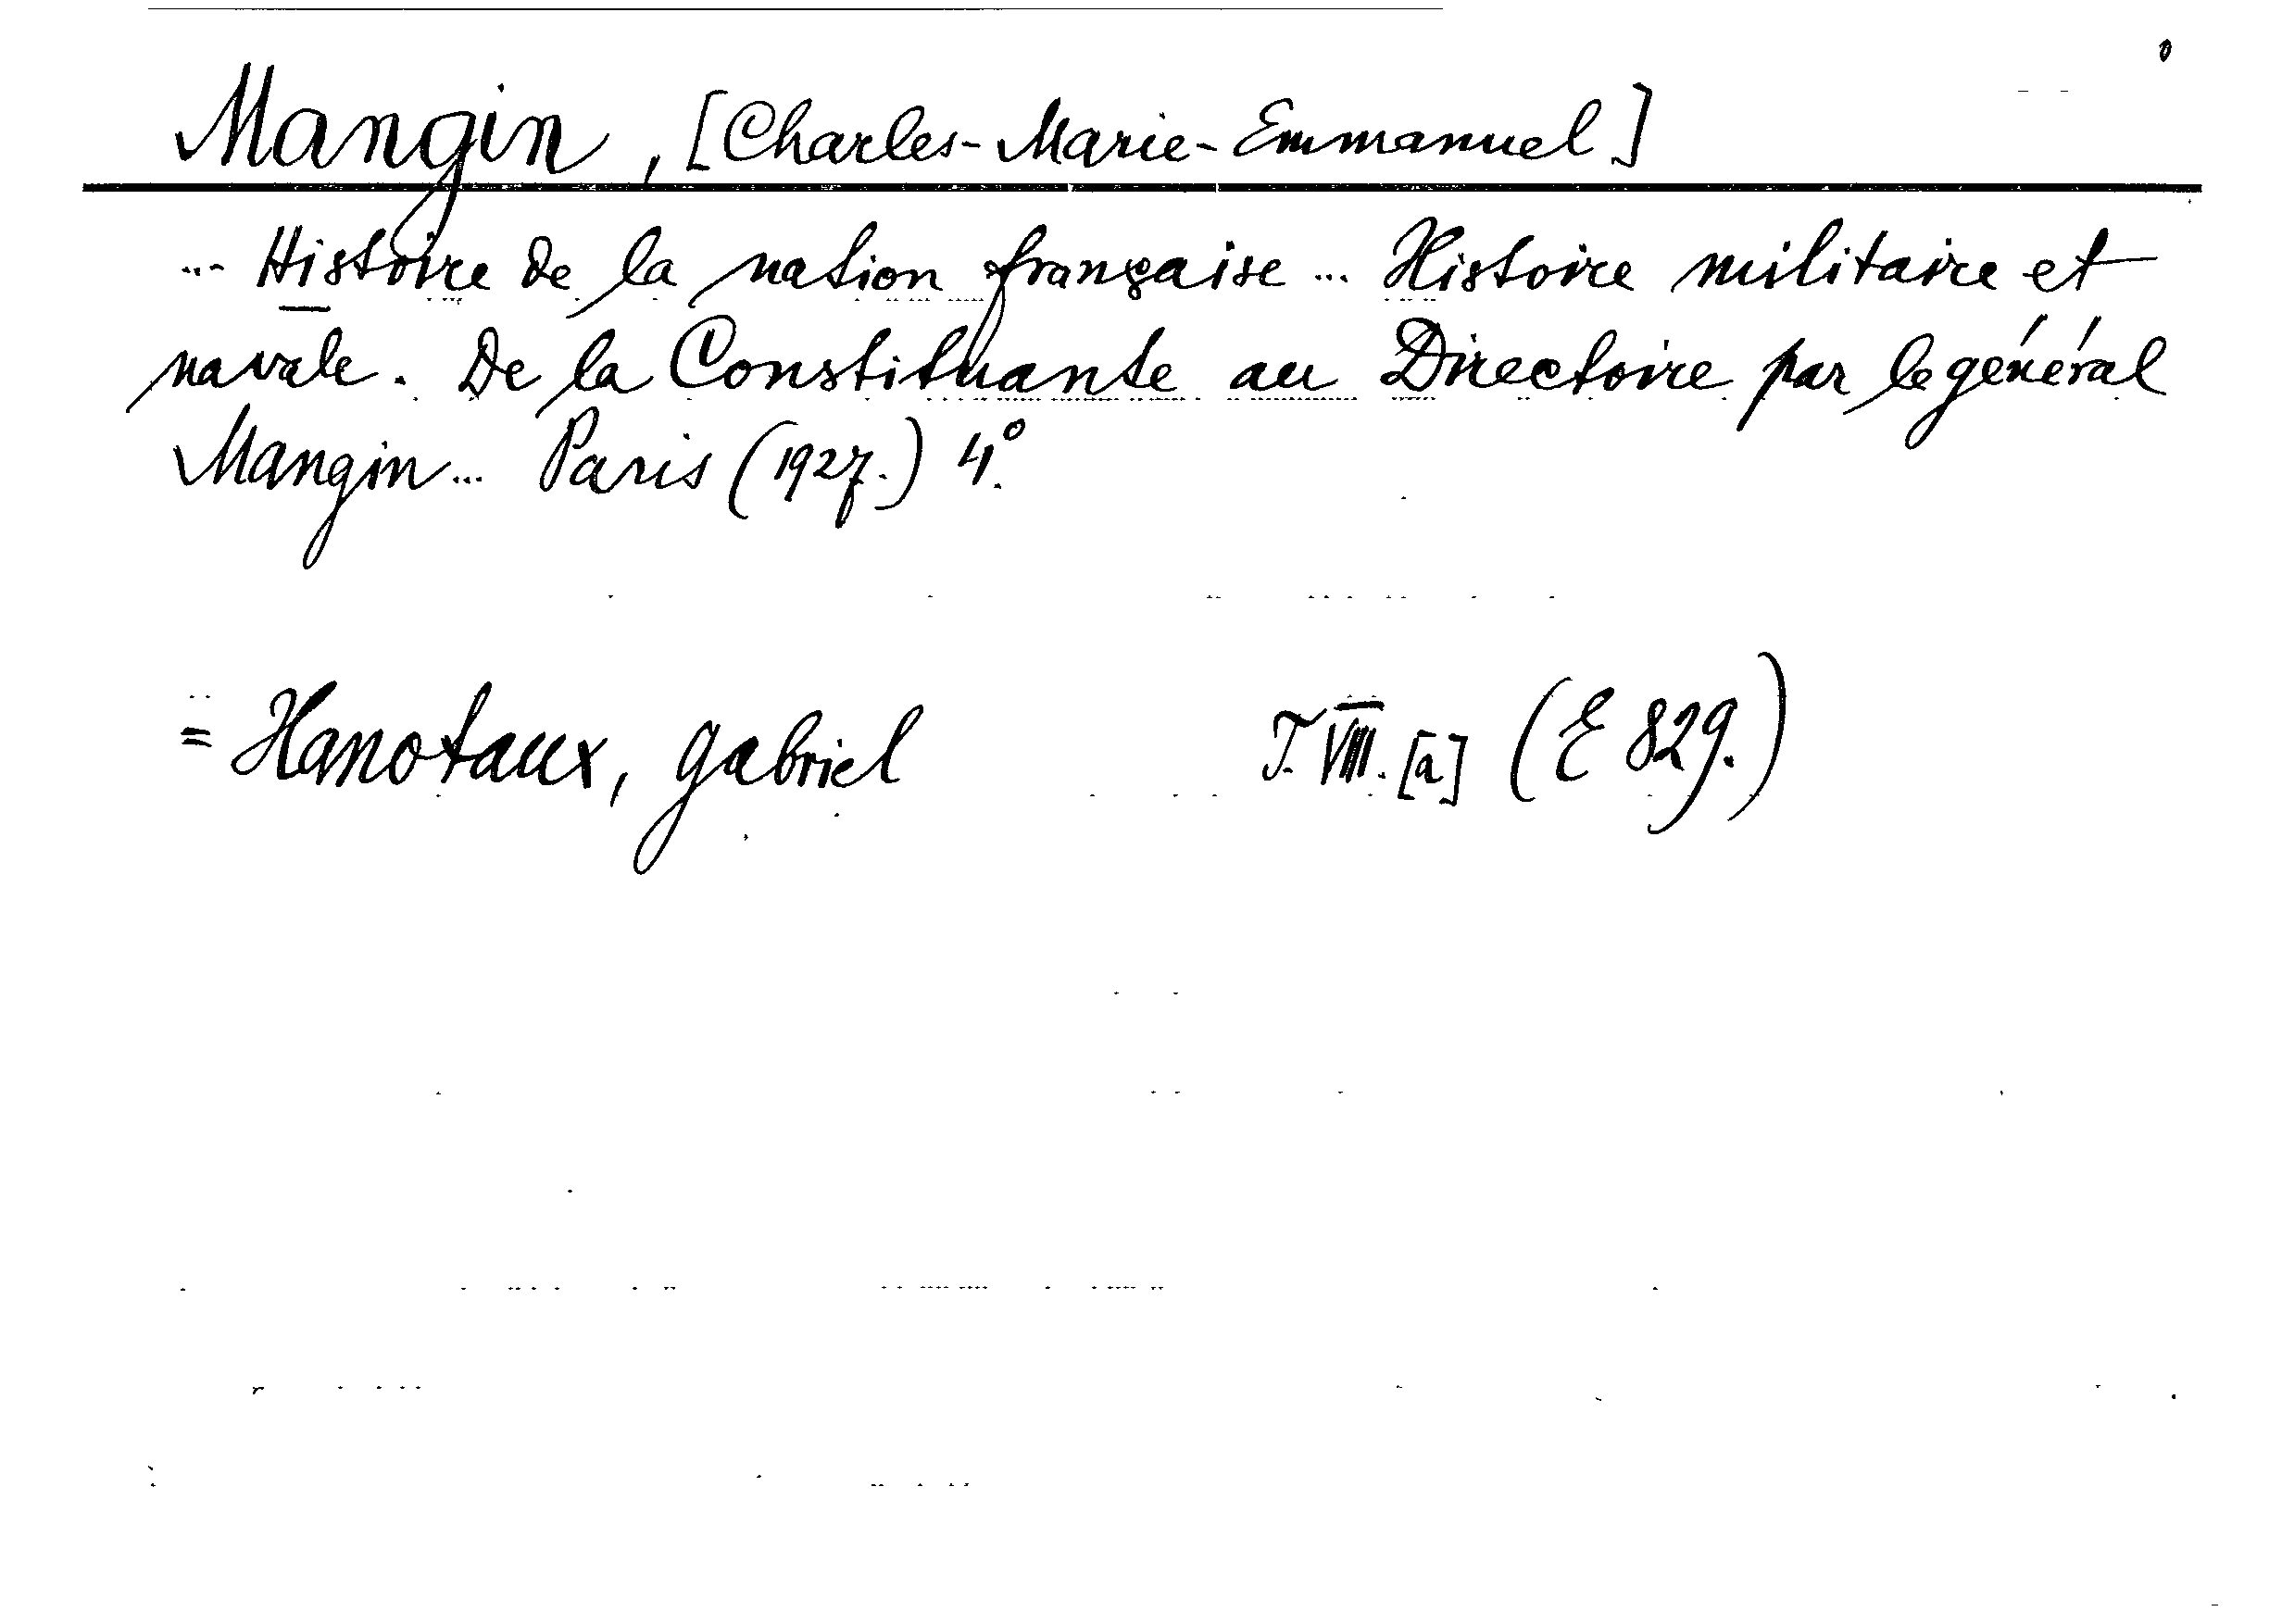 Mangin, [Charles-Marie-Emmanuel]
... Histoire de la nation française ... Histoire militaire et
navale. De la Constituante au Directoire par le général
Mangin ... Paris (1927.) 4°.
= Hanotaux, Gabriel T. VIII. [a] (E 829.)